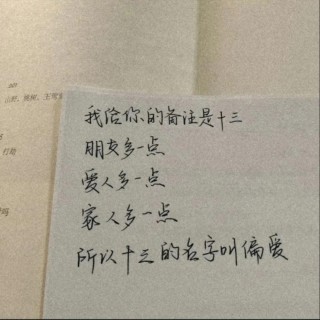 我给你的备注是十三
朋友多一点
爱人多一点
家人多一点
所以十三的名字叫偏爱